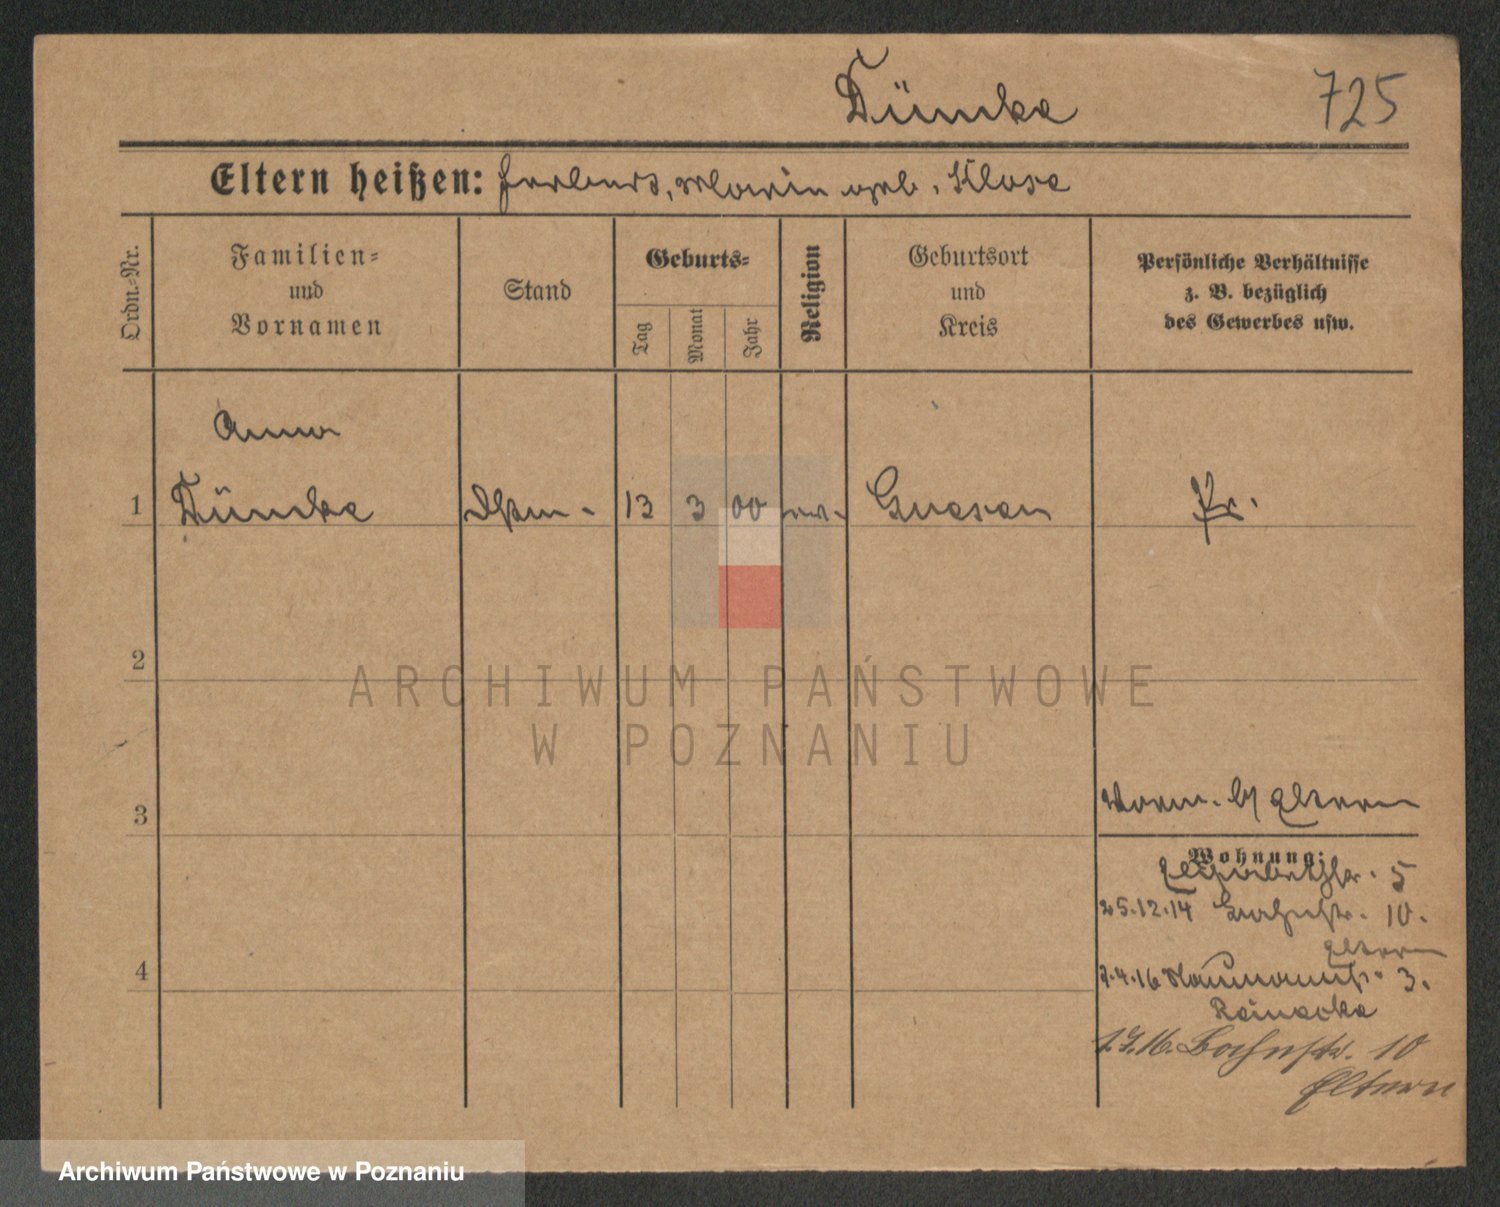 Dümke 725
Eltern heißen: Marie geb. Klose
Ordn.=Nr.
Familien=
und
Vornamen
Stand
Geburts=
Tag
Monat
Jahr
Religion
Geburtsort
und
Kreis
Persönliche Verhältnisse
z. B. bezüglich
des Gewerbes usw.
Anna
1 Dümke 13 3 00 ev. Gnesen Pr.
2
ARCHIWUM PAŃSTWOWE
W POZNANIU
3
b/ Eltern
Wohnung:
5
25.12.14 Bahnhstr. 10.
Eltern
4
7.4.16 Naumannstr. 3.
Reinecke
1.7.16. Bahnhstr. 10
Eltern
Archiwum Państwowe w Poznaniu